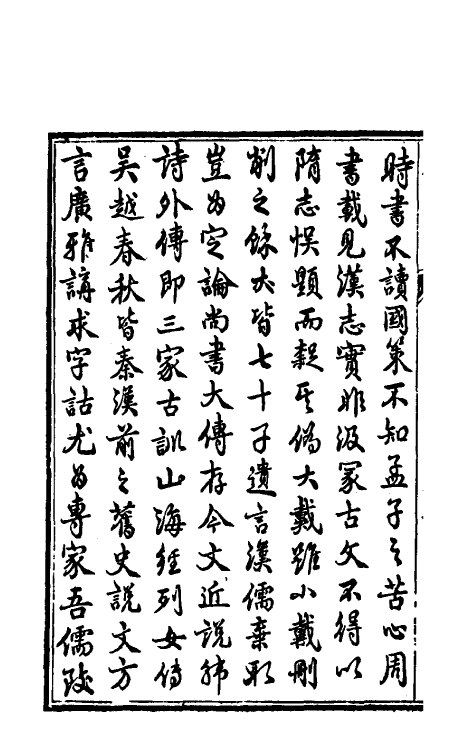 時書不讀國策不知孟子之苦心周
書載見漢志實非汲冢古文不得以
隋志悞題而疑其偽大戴雖小戴刪
削之餘大皆七十子遺言漢儒棄取
豈為定論尚書大傳存今文近說韓
詩外傳即三家古訓山海經列女傳
吳越春秋皆秦漢前之舊史說文方
言廣雅講求字詁尤為專家吾儒跂